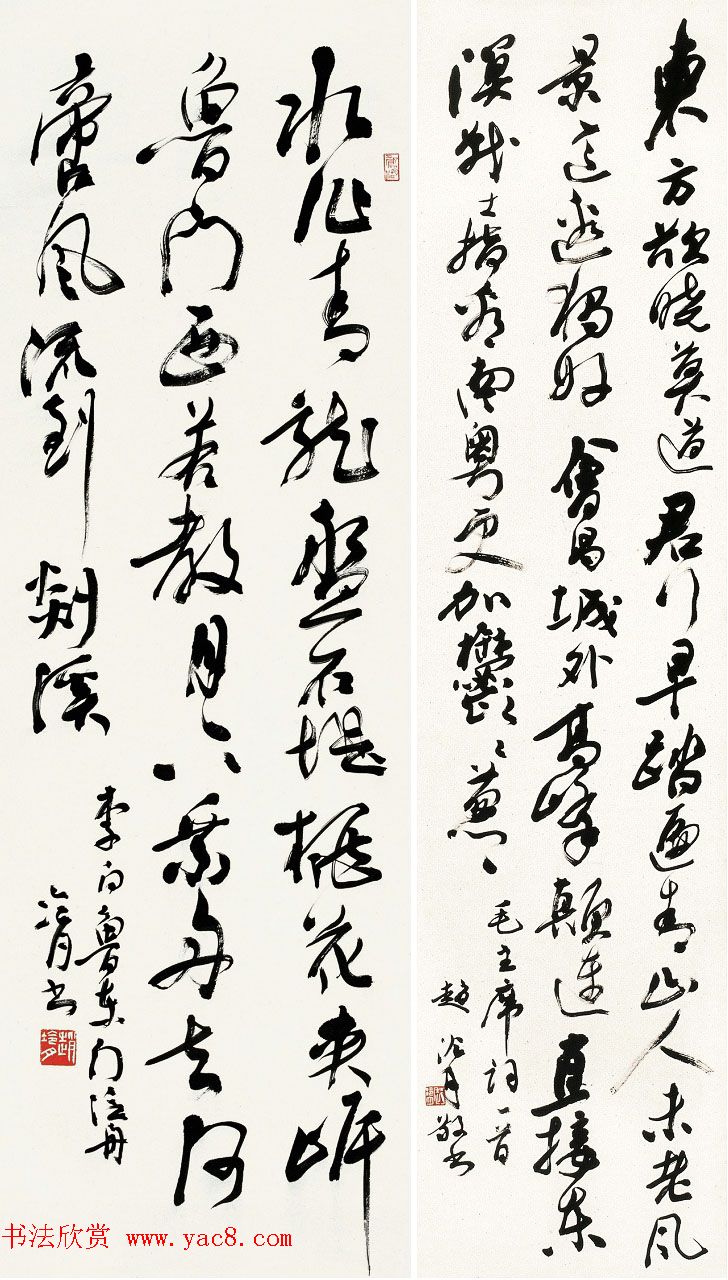 東方欲晓莫道君行早踏遍青山人未老风
景这邊獨好會昌城外高峰颠连直接东
溟战士指看南粤更加欝々葱々
毛主席词一首
趙冷月敬书
水作青龙盘石堤桃花夹岸
魯门西若教月下乘舟去何
啻风流到剡溪
李白魯东门泛舟
冷月书
书法欣赏 www.yac8.com